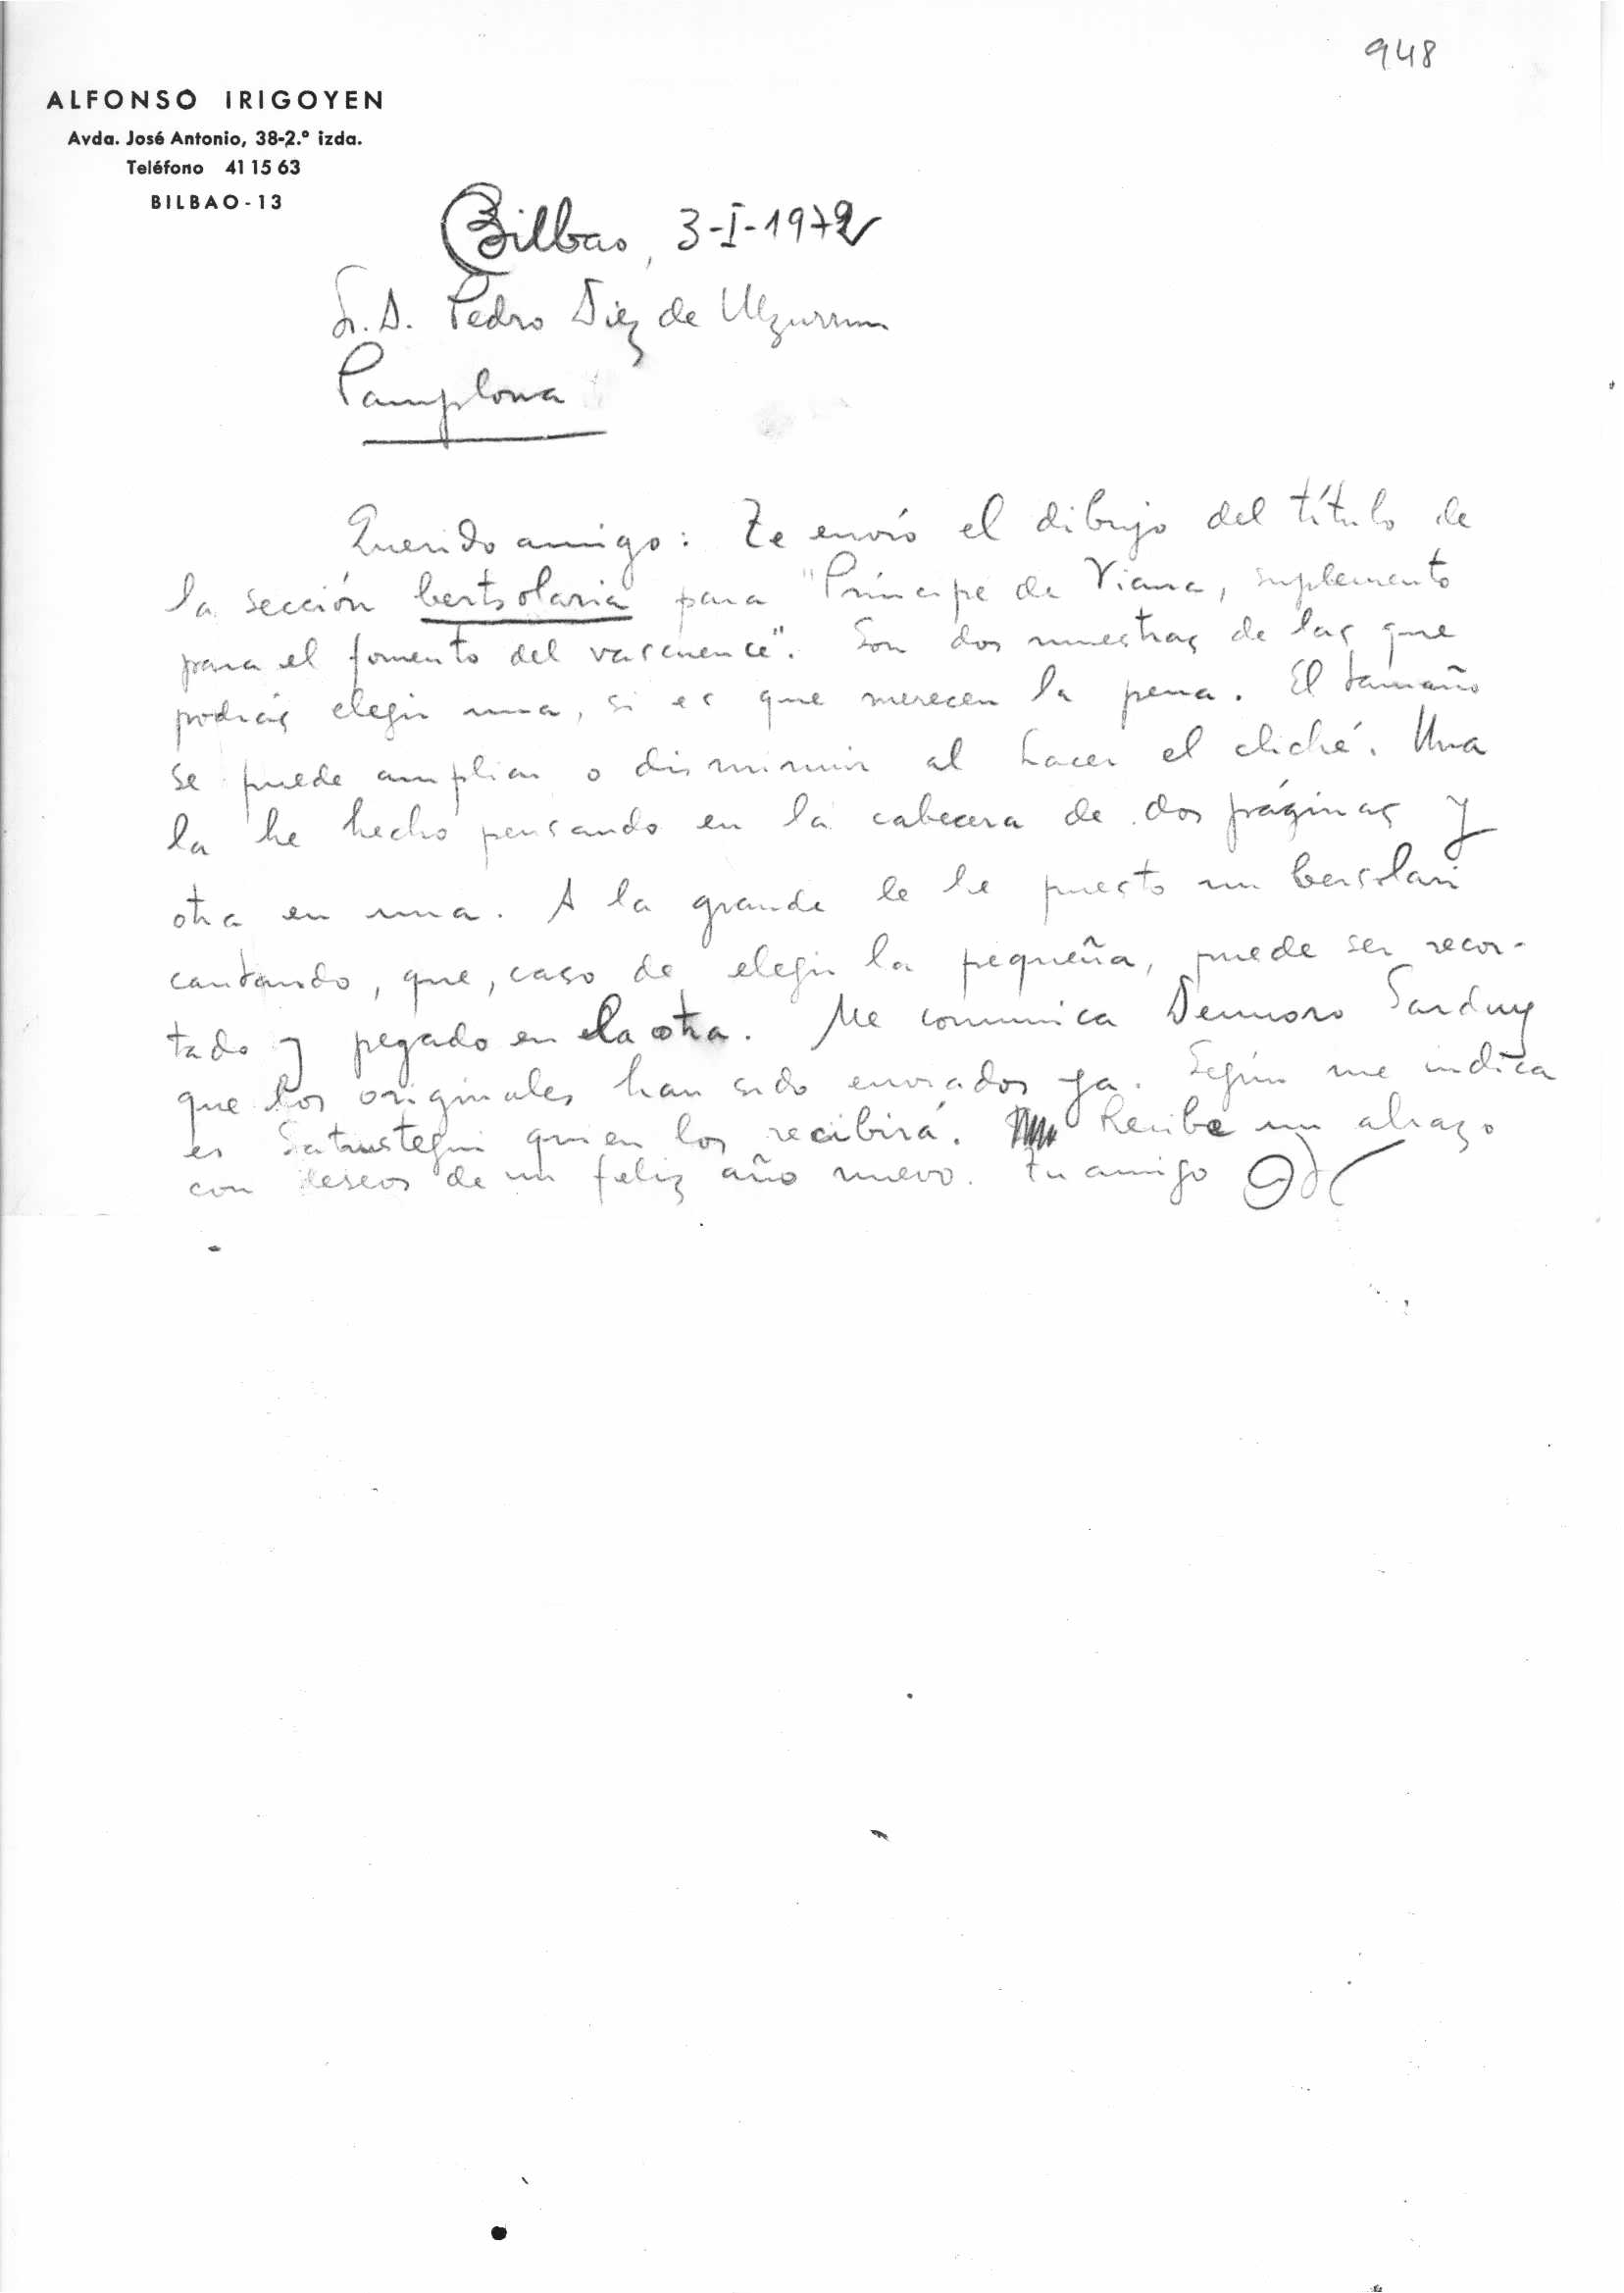 948
ALFONSO IRIGOYEN
Avda. José Antonio, 38-2.º izda.
Teléfono 41 15 63
BILBAO-13
Bilbao, 3-I-1972
Sr. D. Pedro Diez de Ulzurrun
Pamplona
Querido amigo: Te envío el dibujo del título de
la sección bertsolaria para "Príncipe de Viana, suplemento
para el fomento del vascuence". Son dos muestras de las que
podrás elegir una, si es que merecen la pena. El tamaño
se puede ampliar o disminuir al hacer el cliché. Una
la he hecho pensando en la cabecera de dos páginas y
otra en una. A la grande le he puesto un bersolari
cantando, que, caso de elegir la pequeña, puede ser recor-
tado y pegado en la otra. Me comunica Demnoro Sarduy
que los originales han sido enviados ya. Según me indica
es Satrustegui quien los recibirá. Recibe un abrazo
con deseos de un feliz año nuevo. Tu amigo